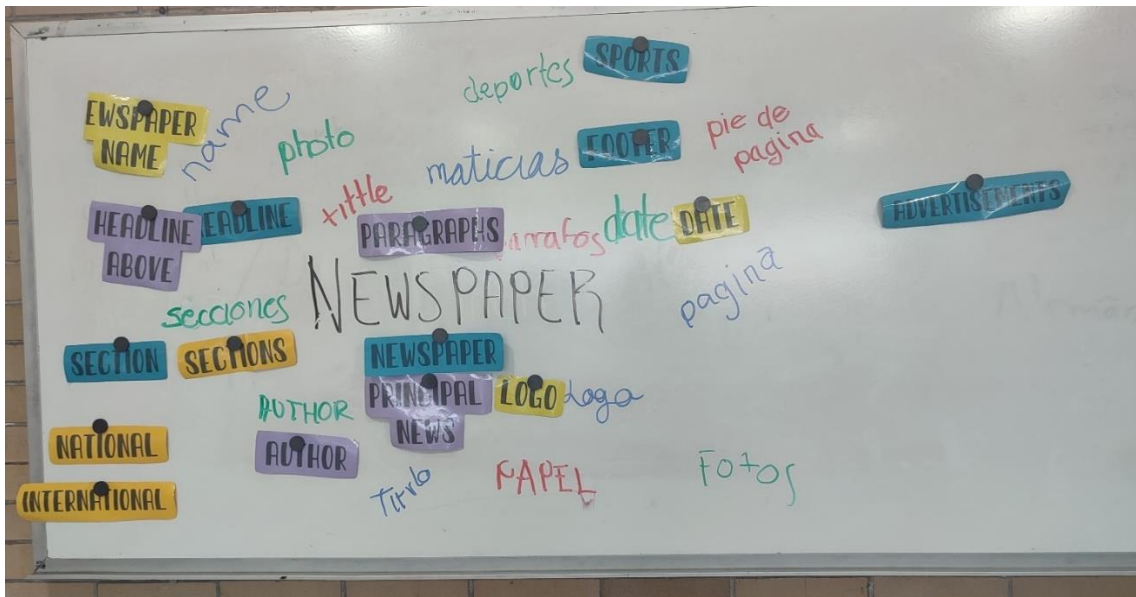 deportes SPORTS
EWSPAPER
NAME
name
photo
maticias
FOOTER
pie de
pagina
HEADLINE
ABOVE
EADLINE
tittle
PARAGRAPHS
arrafos
date
DATE
ADVERTISEMENTS
NEWSPAPER
pagina
secciones
SECTION
SECTIONS
NEWSPAPER
PRINCIPAL
NEWS
LOGO
Logo
NATIONAL
AUTHOR
AUTHOR
INTERNATIONAL
Titulo
PAPEL
FOtOS